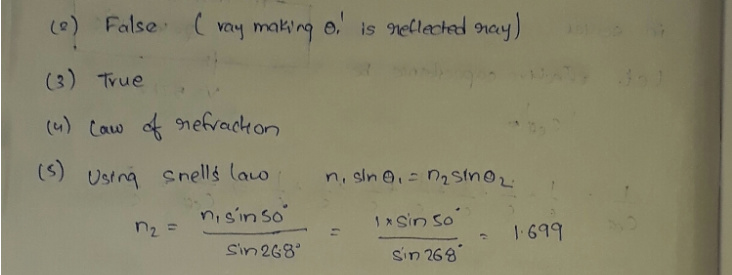 (2) False. ( ray making θ₁' is reflected ray)
(3) True
(4) Law of refraction
(5) Using snells law n₁ sinθ₁ = n₂ sinθ₂
n₂ = n₁ sin 50° / sin 268° = 1 x sin 50° / sin 268° = 1.699